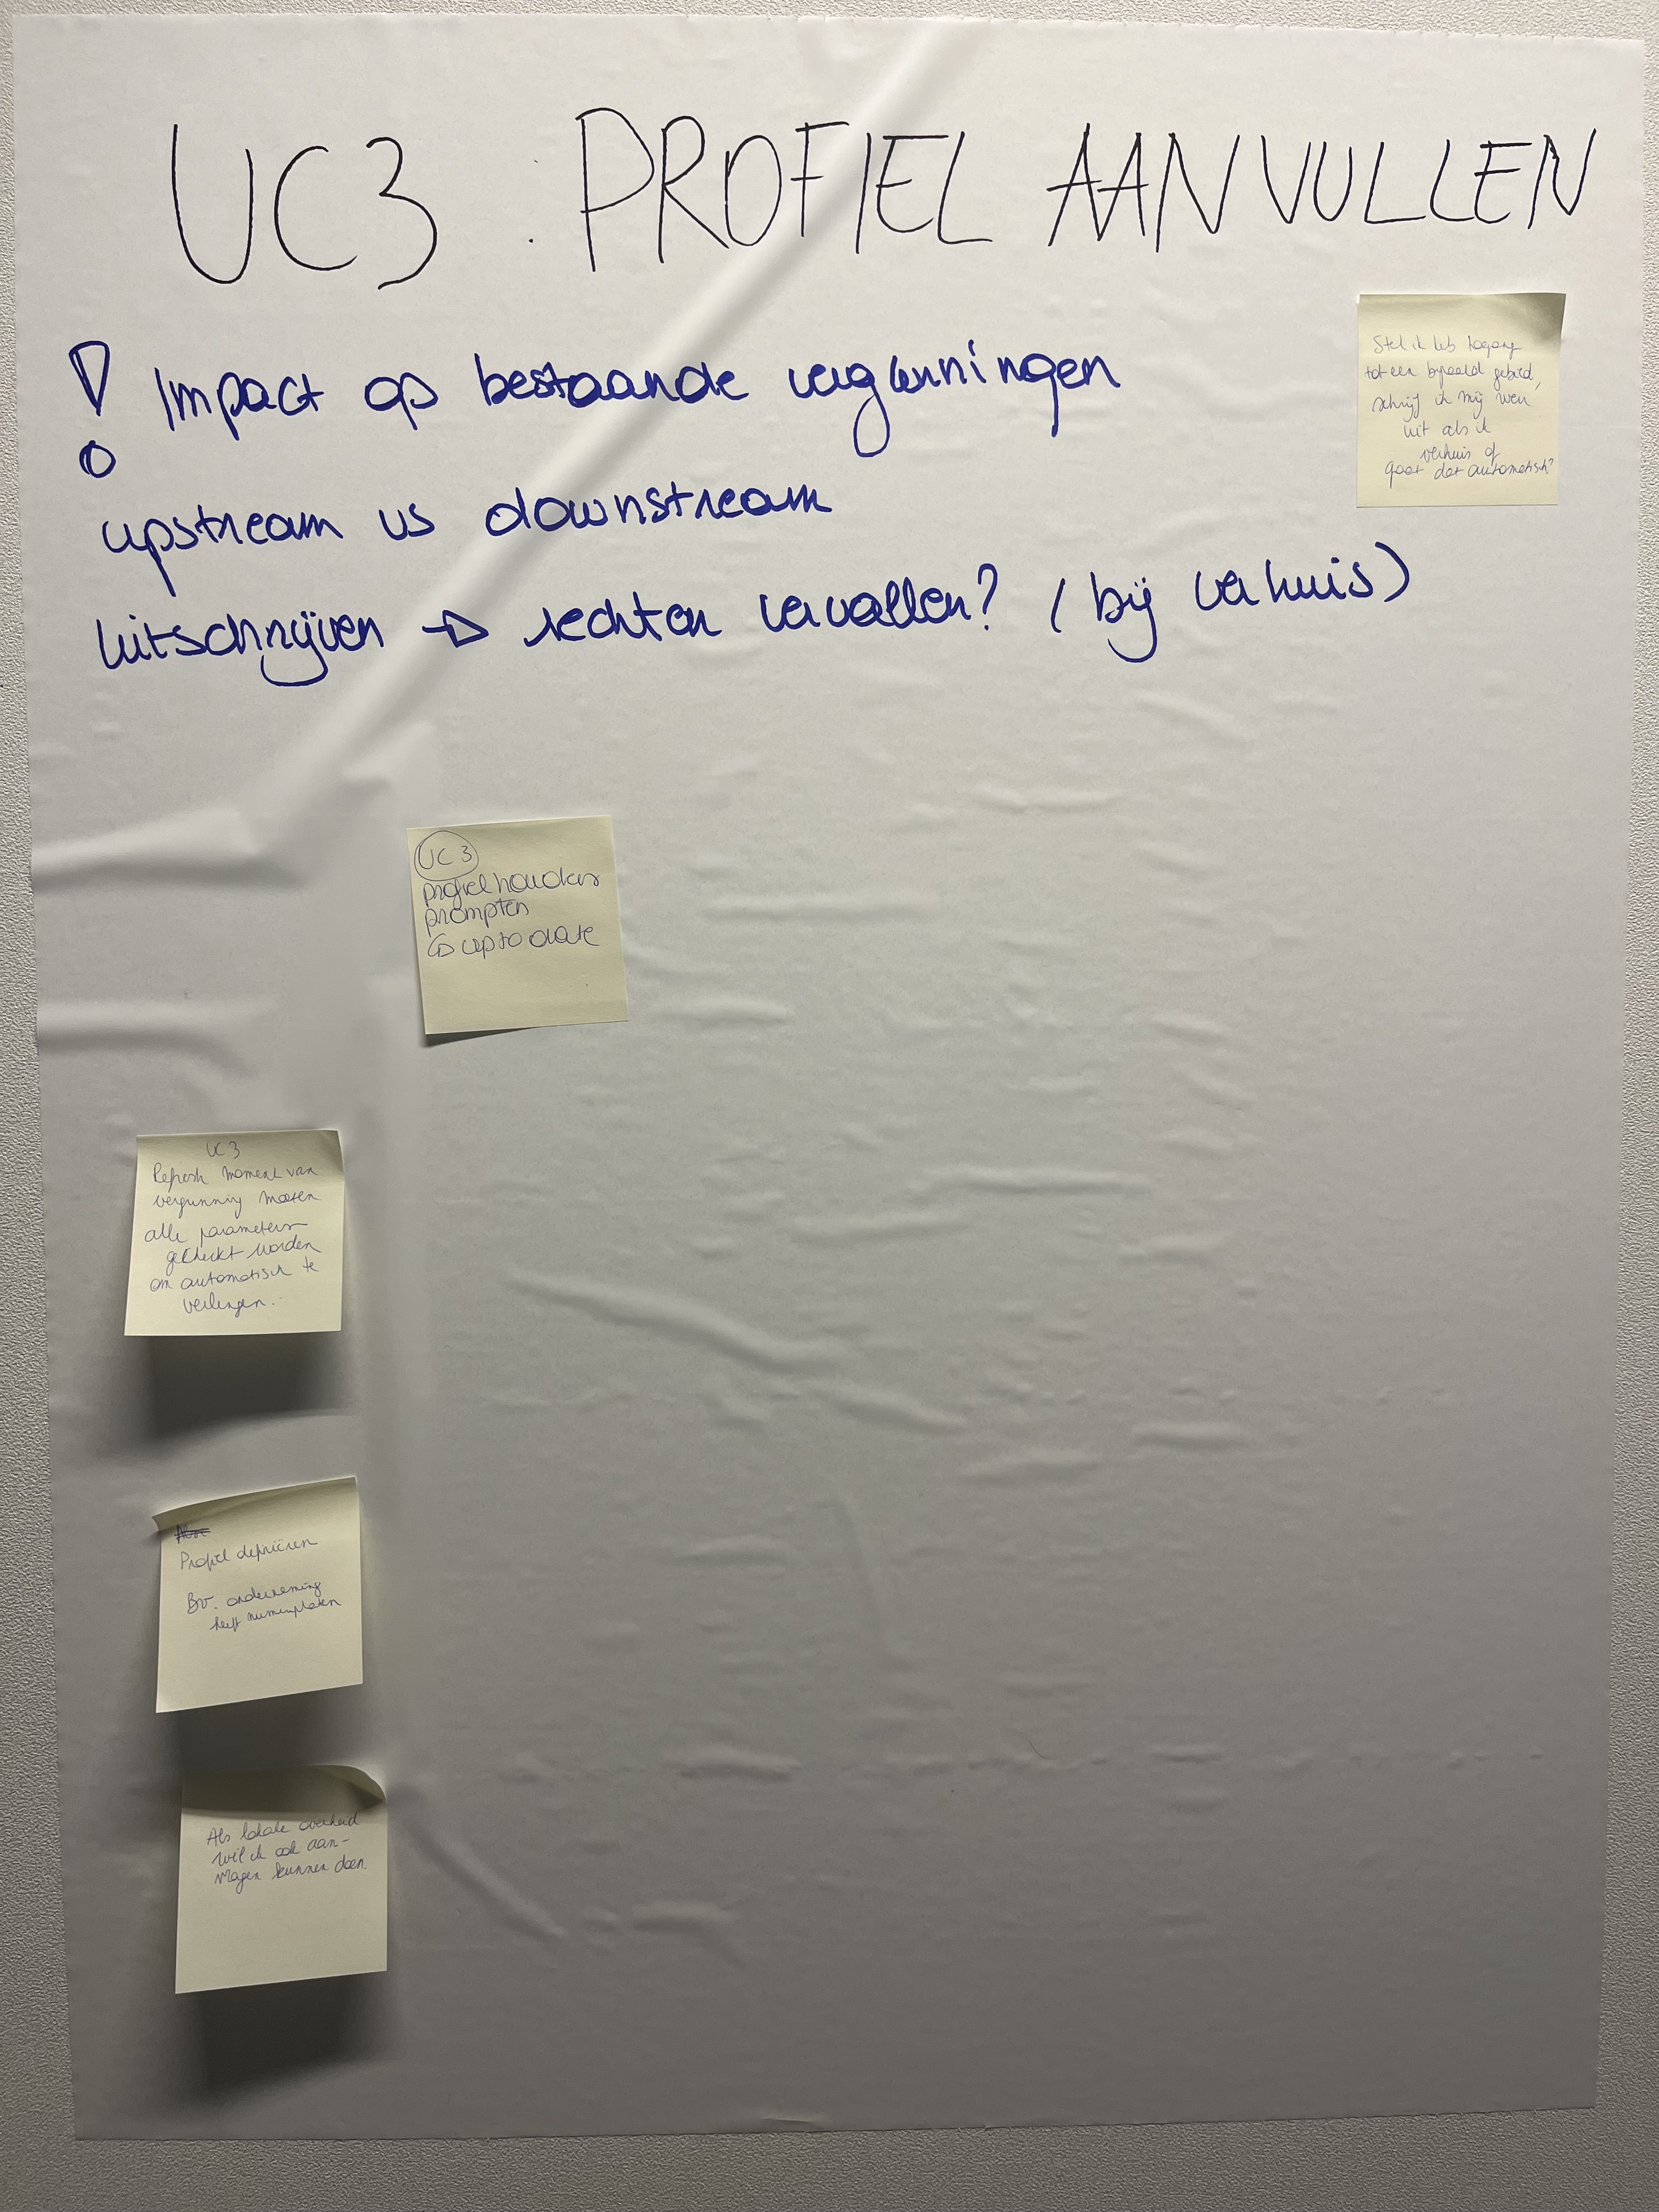 UC3 : PROFIEL AANVULLEN
! Impact op bestaande vergunningen
upstream vs downstream
uitschrijven → rechten vervallen? (bij verhuis)
Stel ik heb toegang
tot een bepaald gebied,
schrijf ik mij weer
uit als ik
verhuis of
gaat dat automatisch?
UC 3
profielhouders
prompten
up to date
UC 3
Refresh moment van
vergunning moeten
alle parameters
gecheckt worden
om automatisch te
verlengen.
Profiel definiëren
Bv. onderneming
heeft nummerplaten
Als lokale overheid
wil ik ook aan-
vragen kunnen doen